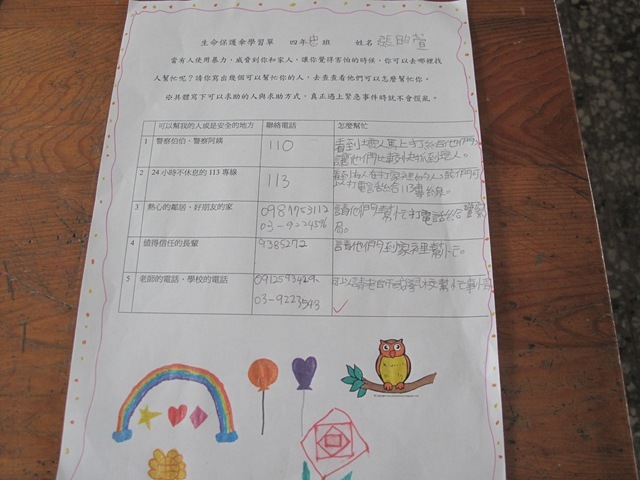 生命保護傘學習單 四年 班 姓名 張 萱
當有人使用暴力,威脅到你和家人,讓你覺得害怕的時候,你可以去哪裡找
人幫忙呢?請你寫出幾個可以幫忙你的人,去查查看他們可以怎麼幫忙你。
※具體寫下可以求助的人與求助方式,真正遇上緊急事件時就不會慌亂。
可以幫我的人或是安全的地方 聯絡電話 怎麼幫忙
1 警察伯伯、警察阿姨 110 看到壞人馬上打給他們
讓他們比較快抓到壞人。
2 24 小時不休息的 113 專線 113 看到有人在打家裡的人
以打電話給113專線。
3 熱心的鄰居、好朋友的家 請他們幫忙打電話給警察
03- 局。
4 值得信任的長輩 9385272 請他們到家裡幫忙。
5 老師的電話、學校的電話 可以請老師或學校幫忙
03-9223593